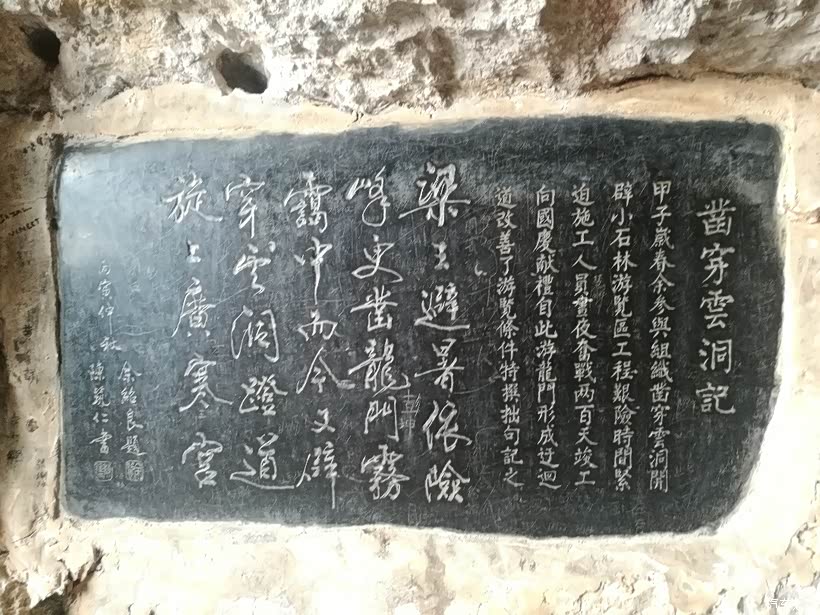 凿穿雲洞記
甲子歲春余参與組織凿穿雲洞開
辟小石林游覽區工程艱險時間緊
迫施工人員晝夜奮戰两百天竣工
向國慶献禮自此游龍門形成迂迴
道改善了游覽條件特撰拙句記之
梁王避暑依險
峰更凿龍門霧
靄中而今又辟
穿雲洞蹬道
旋上廣寒宫
丙寅仲秋
余紹良題
陳冕仁書